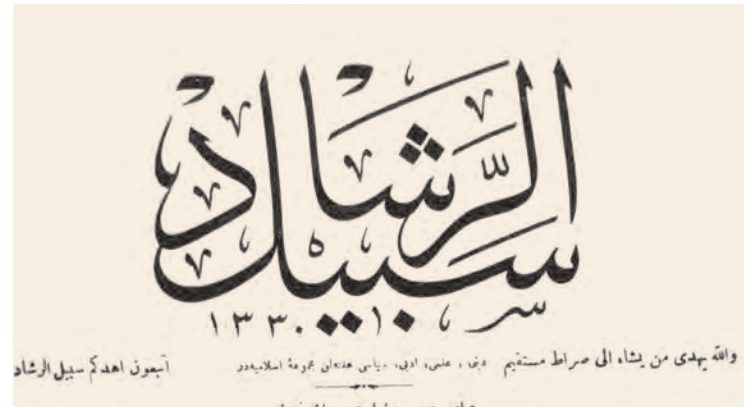 سبيل الرشاد
١٣٣٠
والله يهدى من يشاء الى صراط مستقيم
دينى، علمى، ادبى، سياسى هفته‌لق مجموعهٔ اسلاميه‌در
اتبعون اهدكم سبيل الرشاد